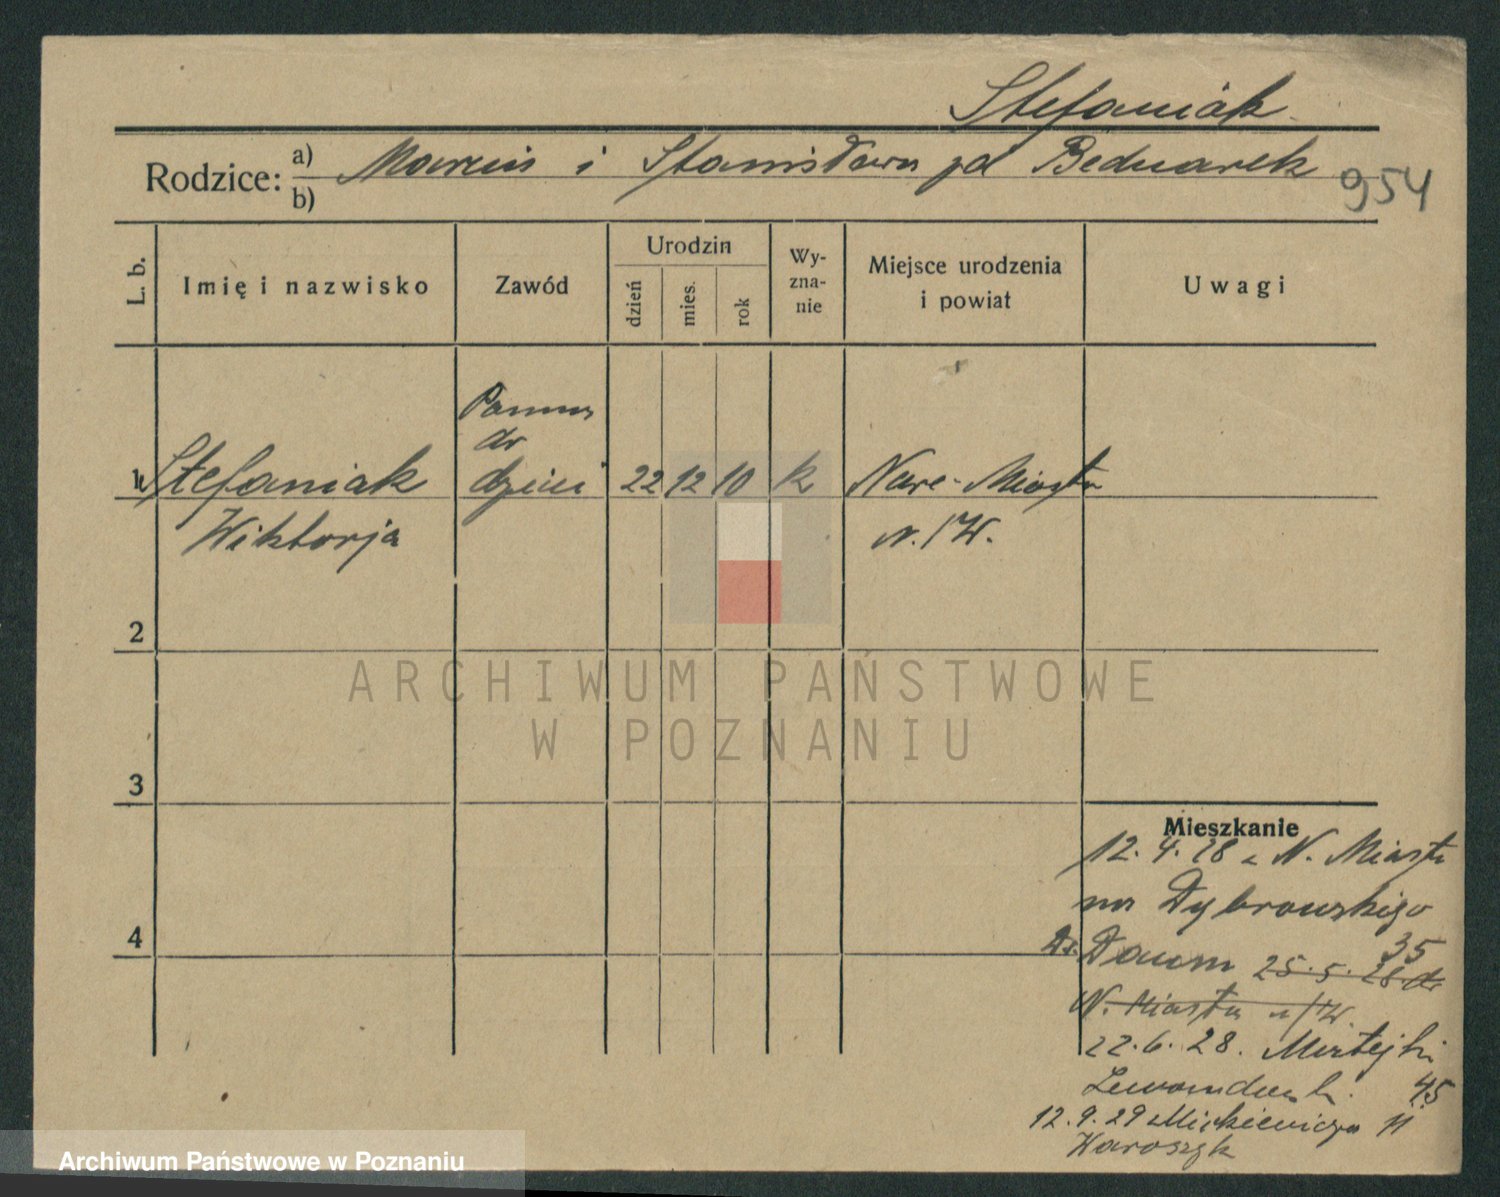 Stefaniak
Rodzice: a) Marcin i Stanisława zd Bednarek
b)
954
L. b.
Imię i nazwisko
Zawód
Urodzin
dzień
mies.
rok
Wy-
zna-
nie
Miejsce urodzenia
i powiat
Uwagi
1 Stefaniak
Wiktorja
Panna
do
dzieci
22 12 10 k
Nowe-Miasto
n./W.
2
3
4
ARCHIWUM PAŃSTWOWE
W POZNANIU
Mieszkanie
12.4.28 z N. Miasta
na Dąbrowskiego
35
25.5.28 do
N. Miasta n/W.
22.6.28. Matejki
45
12.9.29 Mickiewicza 11
Archiwum Państwowe w Poznaniu